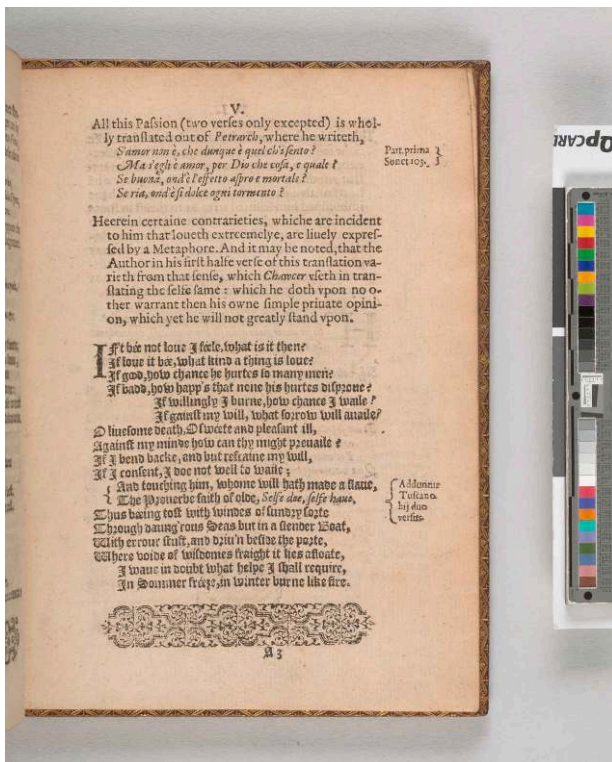 V.
All this Passion (two verses only excepted) is whol-
ly translated out of Petrarch, where he writeth,
S'amor non è, che dunque è quel ch'i sento?
Ma s'egli è amor, per Dio che cosa, e quale?
Se buona, ond'è l'effetto aspro e mortale?
Se ria, ond'è si dolce ogni tormento?
Part. prima
Sonet 103.
Heerein certaine contrarieties, whiche are incident
to him that loueth extreemelye, are liuely expres-
sed by a Metaphore. And it may be noted, that the
Author in his first halfe verse of this translation va-
rieth from that sense, which Chawcer vseth in tran-
slating the selfe same: which he doth vpon no o-
ther warrant then his owne simple priuate opini-
on, which yet he will not greatly stand vpon.
IF't bee not loue I feele, what is it then?
If loue it bee, what kind a thing is loue?
If good, how chance he hurtes so many men?
If badd, how happ's that none his hurtes disproue?
If willingly I burne, how chance I waile?
If gainst my will, what sorrow will auaile?
O liuesome death, O sweete and pleasant ill,
Against my minde how can thy might preuaile?
If I bend backe, and but refraine my will,
If I consent, I doe not well to waile;
And touching him, whome will hath made a slaue,
The Prouerbe saith of olde, Selfe doe, selfe haue,
Adduntur
Tuscano
hij duo
versus.
Thus beeing tost with windes of sundry sorte
Through daung'rous Seas but in a slender Boat,
With errour stuft, and driu'n beside the porte,
Where voide of wisdomes fraight it lies afloate,
I waue in doubt what helpe I shall require,
In Sommer freeze, in winter burne like fire.
A 3